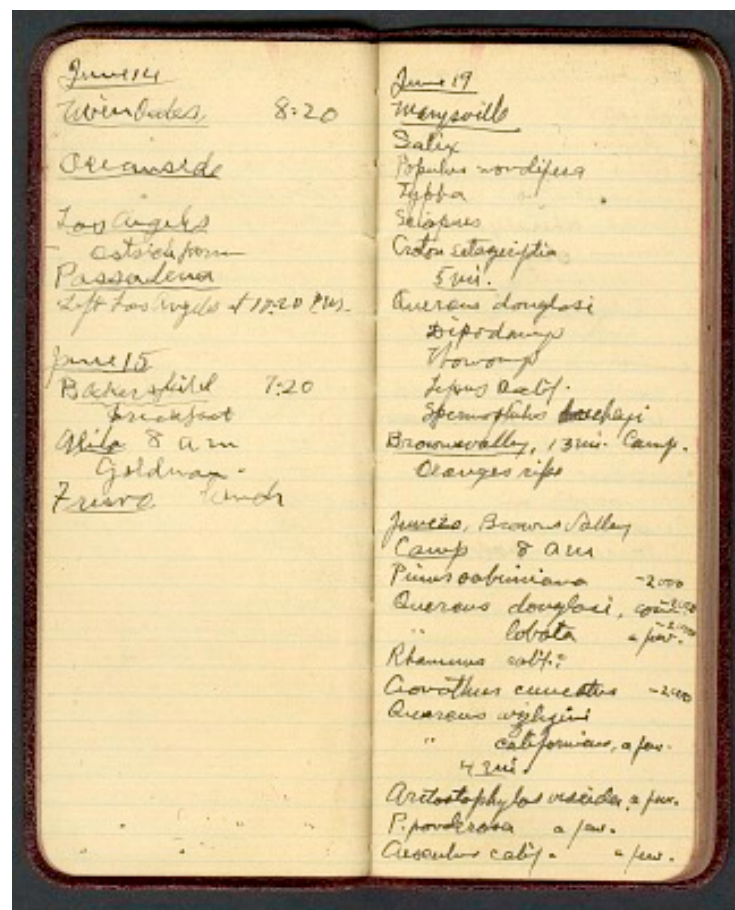 June 14
8:20
Oceanside
Los Angeles
ostrich farm
Passadena
Left Los Angeles at 10:20 P.M.
June 15
Bakersfield 7:20
breakfast
Alila 8 a m
Goldman.
Fresno lunch
June 19
Marysville
Salix
Populus
Typha
Scirpus
Croton
5 mi.
Quercus douglasi
Dipodomys
Lepus Calif.
Spermophilus beecheyi
Brownsvalley, 13 mi. Camp.
Oranges ripe
June 20, Browns Valley
Camp 8 a m
Pinus sabiniana -2000
Quercus douglasi, com -2000
" lobata a few. -2000
Rhamnus calif.
Ceanothus cuneatus -2000
Quercus
" californicus, a few.
4 mi.
Arctostaphylos viscida, a few.
P. ponderosa a few.
Aesculus calif. a few.